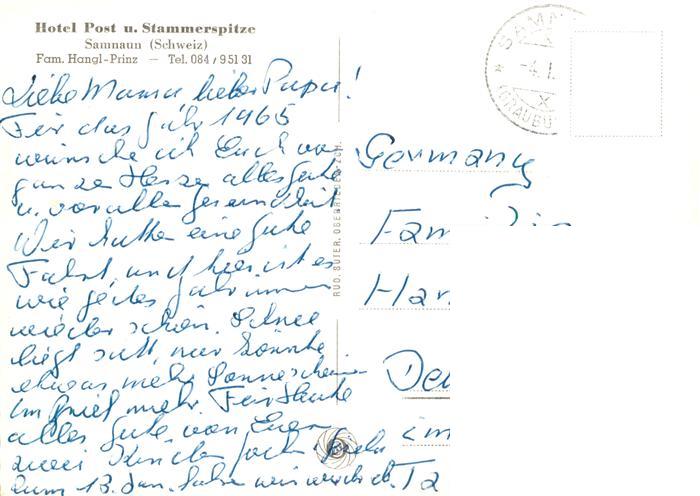 Hotel Post u. Stammerspitze
Samnaun (Schweiz)
Fam. Hangl-Prinz — Tel. 084 / 9 51 31
Liebe Mama lieber Papa!
Für das Jahr 1965
wünsche ich Euch von
ganze Herze alles Gute
u. vor allem Gesundheit
Wir hatten eine gute
Fahrt, und hier ist es
wie jedes Jahr immer
wieder schön. Schnee
liegt satt, nur könnte
etwas mehr Sonneschein
Für Heute
alles Gute von Euer
zwei Kinder
zum 13. Jan.
RUD. SUTER, OBERRIEDEN-ZCH.
SAMNA
-4.I.
(GRAUBÜ
Germany
Fam
Har
Deu